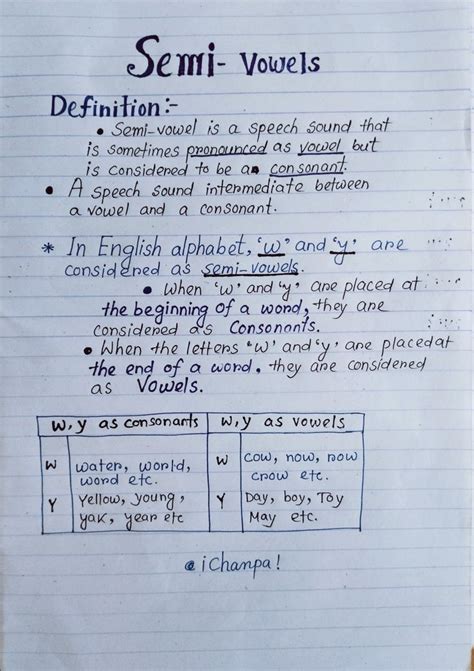 Semi- Vowels
Definition:-
• Semi-vowel is a speech sound that
is sometimes pronounced as vowel but
is considered to be a consonant.
• A speech sound intermediate between
a vowel and a consonant.
* In English alphabet, 'w' and 'y' are
considered as semi-vowels.
• When 'w' and 'y' are placed at
the beginning of a word, they are
considered as Consonants.
• When the letters 'w' and 'y' are placed at
the end of a word. they are considered
as Vowels.
w, y as consonants | w, y as vowels
W | water, world, word etc. | W | cow, now, row crow etc.
Y | Yellow, young, yak, year etc | Y | Day, boy, Toy May etc.
@ iChanpa!